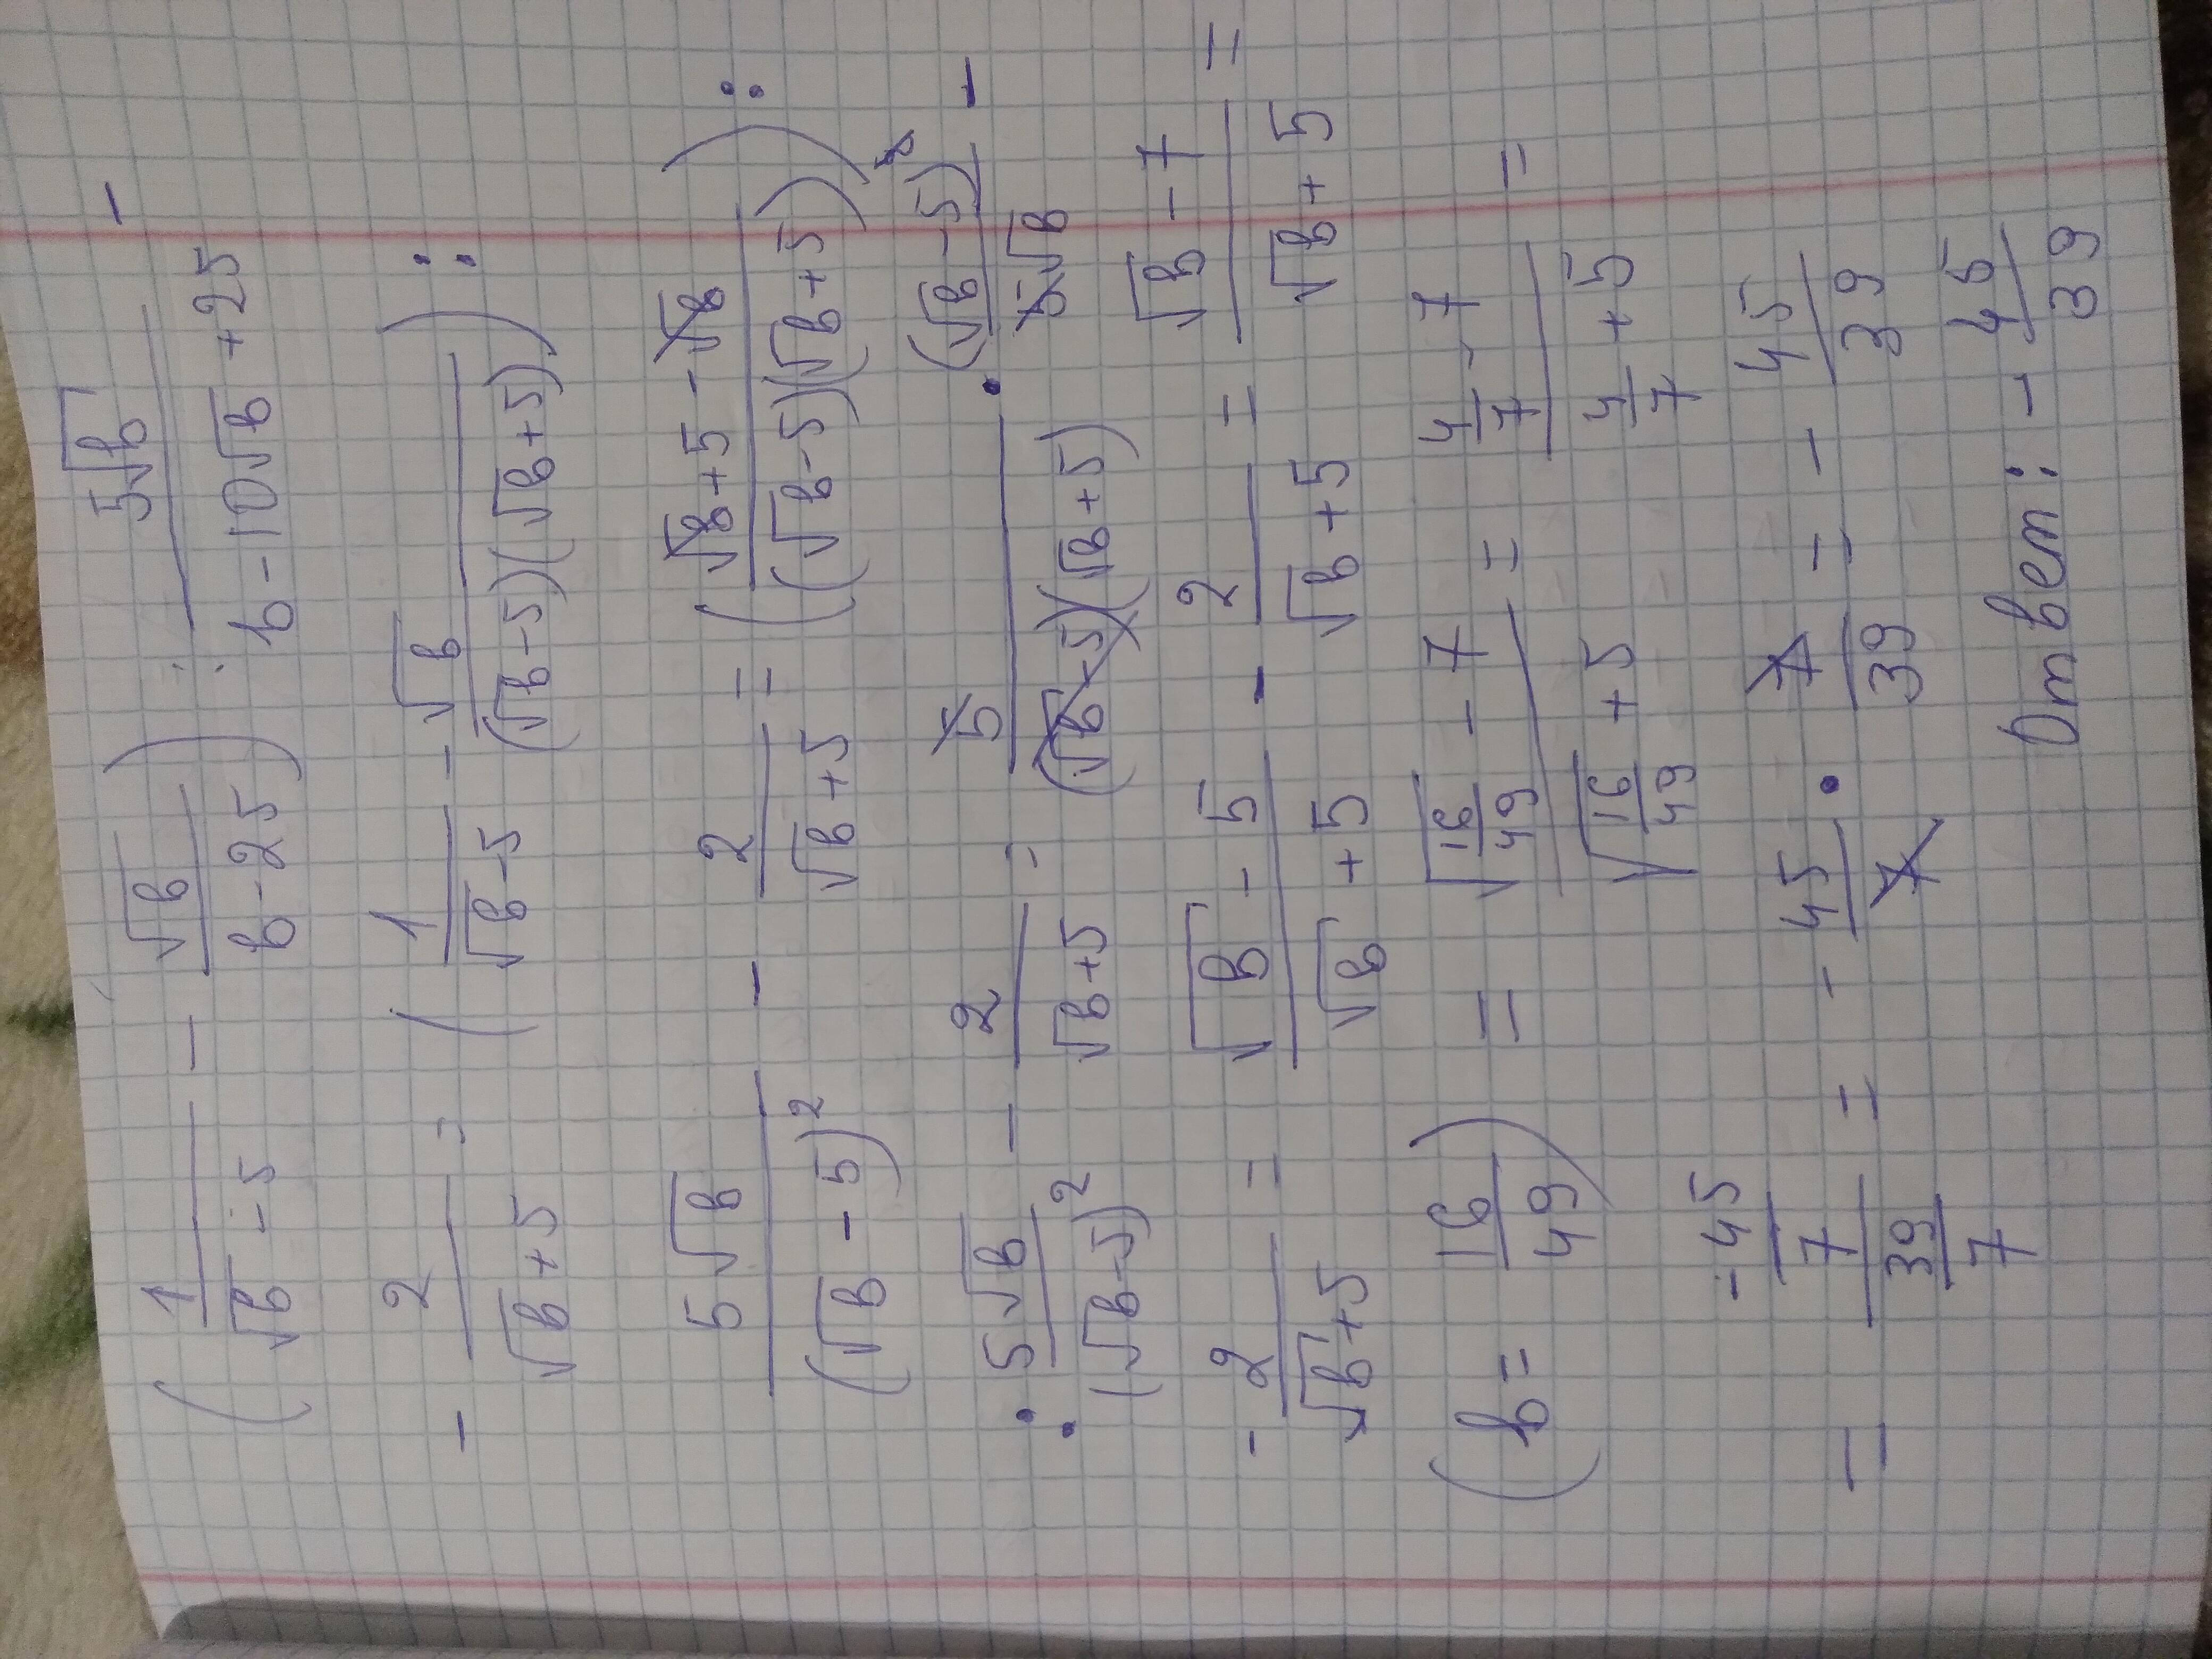 (1/(√b -5) - √b/(b-25)) : 5√b/(b-10√b+25) -
- 2/(√b+5) = (1/(√b-5) - √b/((√b-5)(√b+5))) :
5√b/(√b-5)² - 2/(√b+5) = ((√b+5-√b)/((√b-5)(√b+5))) :
: 5√b/(√b-5)² - 2/(√b+5) = 5/((√b-5)(√b+5)) · (√b-5)²/(5√b) -
- 2/(√b+5) = (√b-5)/(√b+5) - 2/(√b+5) = (√b-7)/(√b+5) =
(b = 16/49) = (√(16/49) - 7)/(√(16/49) + 5) = (4/7 - 7)/(4/7 + 5) =
= (-45/7)/(39/7) = - 45/7 · 7/39 = - 45/39
Ответ: - 45/39